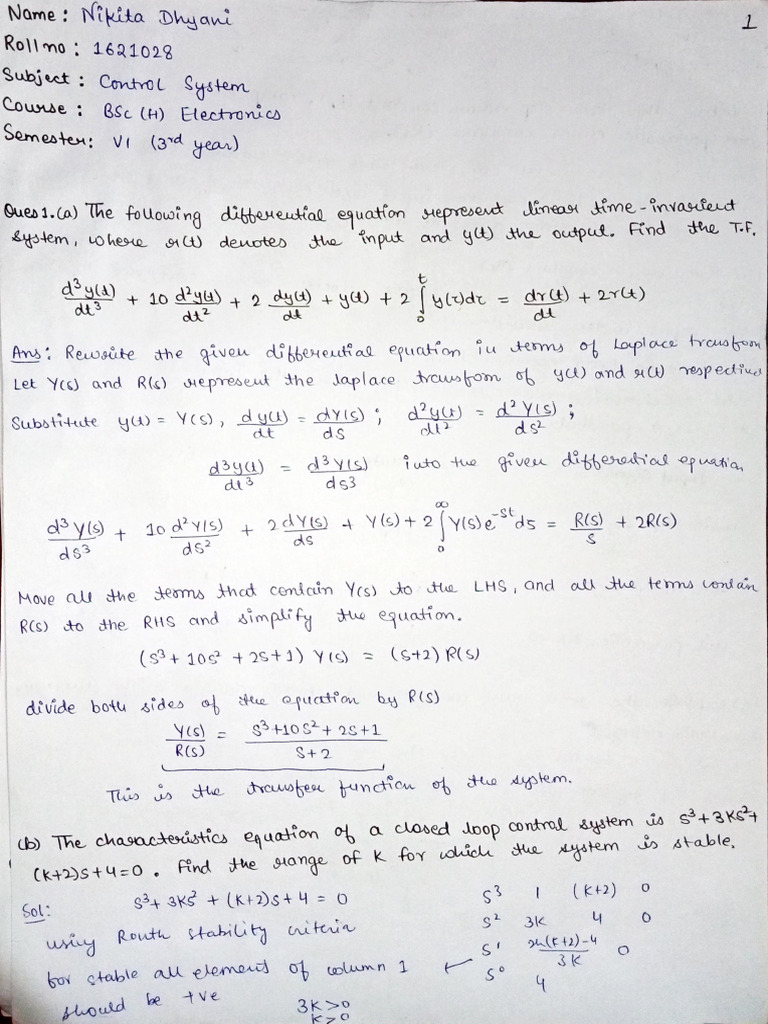 1
Name : Nikita Dhyani
Roll no : 1621028
Subject : Control System
Course : BSc (H) Electronics
Semester: VI (3rd year)
Ques 1.(a) The following differential equation represent linear time-invarient
system, where r(t) denotes the input and y(t) the output. Find the T.F.
d³y(t)/dt³ + 10 d²y(t)/dt² + 2 dy(t)/dt + y(t) + 2 ∫₀ᵗ y(τ)dτ = dr(t)/dt + 2r(t)
Ans : Rewrite the given differential equation in terms of Laplace transform
Let Y(s) and R(s) represent the laplace transfom of y(t) and r(t) respective
Substitute y(t) = Y(s), dy(t)/dt = dY(s)/ds ; d²y(t)/dt² = d²Y(s)/ds² ;
d³y(t)/dt³ = d³Y(s)/ds³ into the given differential equation
d³Y(s)/ds³ + 10 d²Y(s)/ds² + 2 dY(s)/ds + Y(s) + 2 ∫₀^∞ Y(s)e^-st ds = R(s)/s + 2R(s)
Move all the terms that contain Y(s) to the LHS, and all the terms contain
R(s) to the RHS and simplify the equation.
(s³ + 10s² + 2s + 1) Y(s) = (s+2) R(s)
divide both sides of the equation by R(s)
Y(s)/R(s) = s³+10s²+2s+1 / s+2
This is the transfer function of the system.
(b) The characteristics equation of a closed loop control system is s³+3Ks²+
(k+2)s+4=0 . Find the range of K for which the system is stable.
Sol: s³+ 3Ks² + (k+2)s+4 = 0
using Routh stability criteria
for stable all element of column 1
should be +ve
s³ 1 (k+2) 0
s² 3K 4 0
s¹ 3k(k+2)-4/3K 0
s⁰ 4
3K>0
K>0